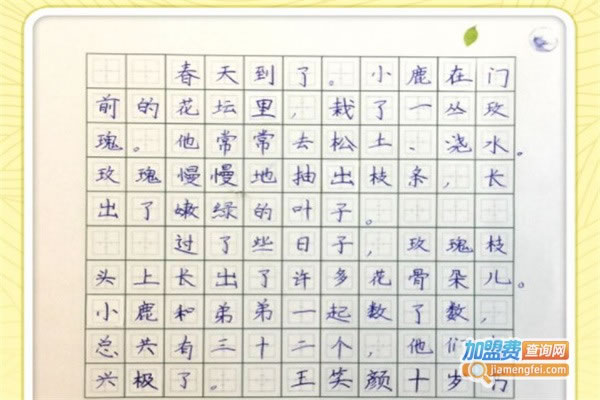 春天到了。小鹿在门
前的花坛里，栽了一丛玫
瑰。他常常去松土、浇水。
玫瑰慢慢地抽出枝条，长
出了嫩绿的叶子。
过了些日子，玫瑰枝
头上长出了许多花骨朵儿。
小鹿和弟弟一起数了数，
总共有三十二个，他们
兴极了。 王笑颜十岁
加盟费查询网
jiamengfei.com